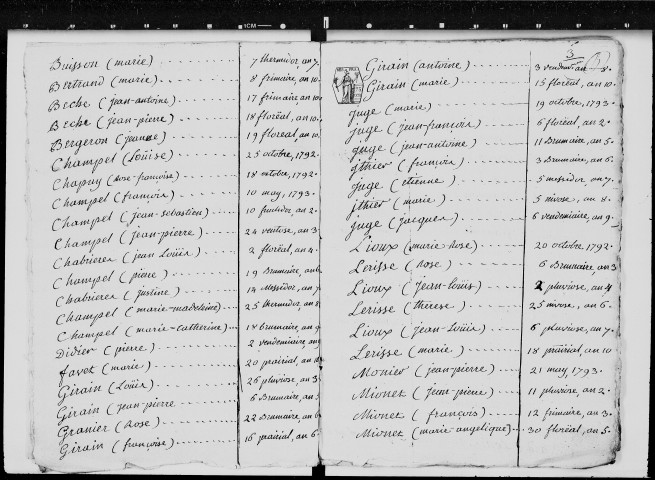 Buisson (marie) 7 thermidor, an 7.
Bertrand (marie) 8 frimaire, an 10.
Beche (jean-antoine) 17 frimaire an 10.
Beche (jean-pierre) 18 floréal, an 10.
Bergeron (jeanne) 19 floréal an 10.
Champel (Loüise) 25 octobre, 1792.
Chapuy (Rose-françoise) 18 octobre, 1792.
Champel (françois) 10 may, 1793.
Champel (jean-sebastien) 10 fructidor, an 2.
Champel (jean-pierre) 24 ventose, an 3.
Chabrieres (jean Loüis) 2 floréal, an 4.
Champel (pierre) 19 Brumaire, an 6
Chabrieres (justine) 14 Messidor, an 7.
Champel (marie-madeleine) 25 thermidor, an 8.
Champel (marie-catherine) 18 Brumaire, an 9
Didier (pierre) 2 vendemiaire, an
favet (marie) 20 prairial, an 10
Girain (Loüis) 26 pluviose, an 3.
Girain (jean-pierre 6 Brumaire, an
Granier (Rose) 22 Brumaire, an 6
Girain (françoise) 16 prairial, an 6.
3
Girain (antoine) 3 vendem. an 8.
Girain (marie) 15 floréal, an 10.
juge (marie) 19 octobre, 1793.
juge (jean-françois) 6 floréal, an 2.
juge (jean-antoine) 11 Brumaire, an 5.
jthier (françois) 3 Brumaire, an 6.
juge (etienne) 5 messidor, an 7.
jthier (marie) 5 nivose, an 8.
juge (jacques) 6 vendemiaire, an 9.
Lioux (marie Rose) 20 octobre, 1792.
Lerisse (Rose) 6 Brumaire, an 3
Lioux (jean-Louis) 2 pluviose, an 4
Lerisse (therese) 25 nivose, an 6.
Lioux (jean-Loüis) 6 pluviose, an 7.
Lerisse (marie) 18 prairial, an 10
Monier (jean-pierre) 21 may, 1793.
Mionet (jean-pierre) 11 pluviose, an 2.
Mionet (françois) 12 frimaire, an 3.
Mionet (marie-angelique) 30 floréal, an 5.